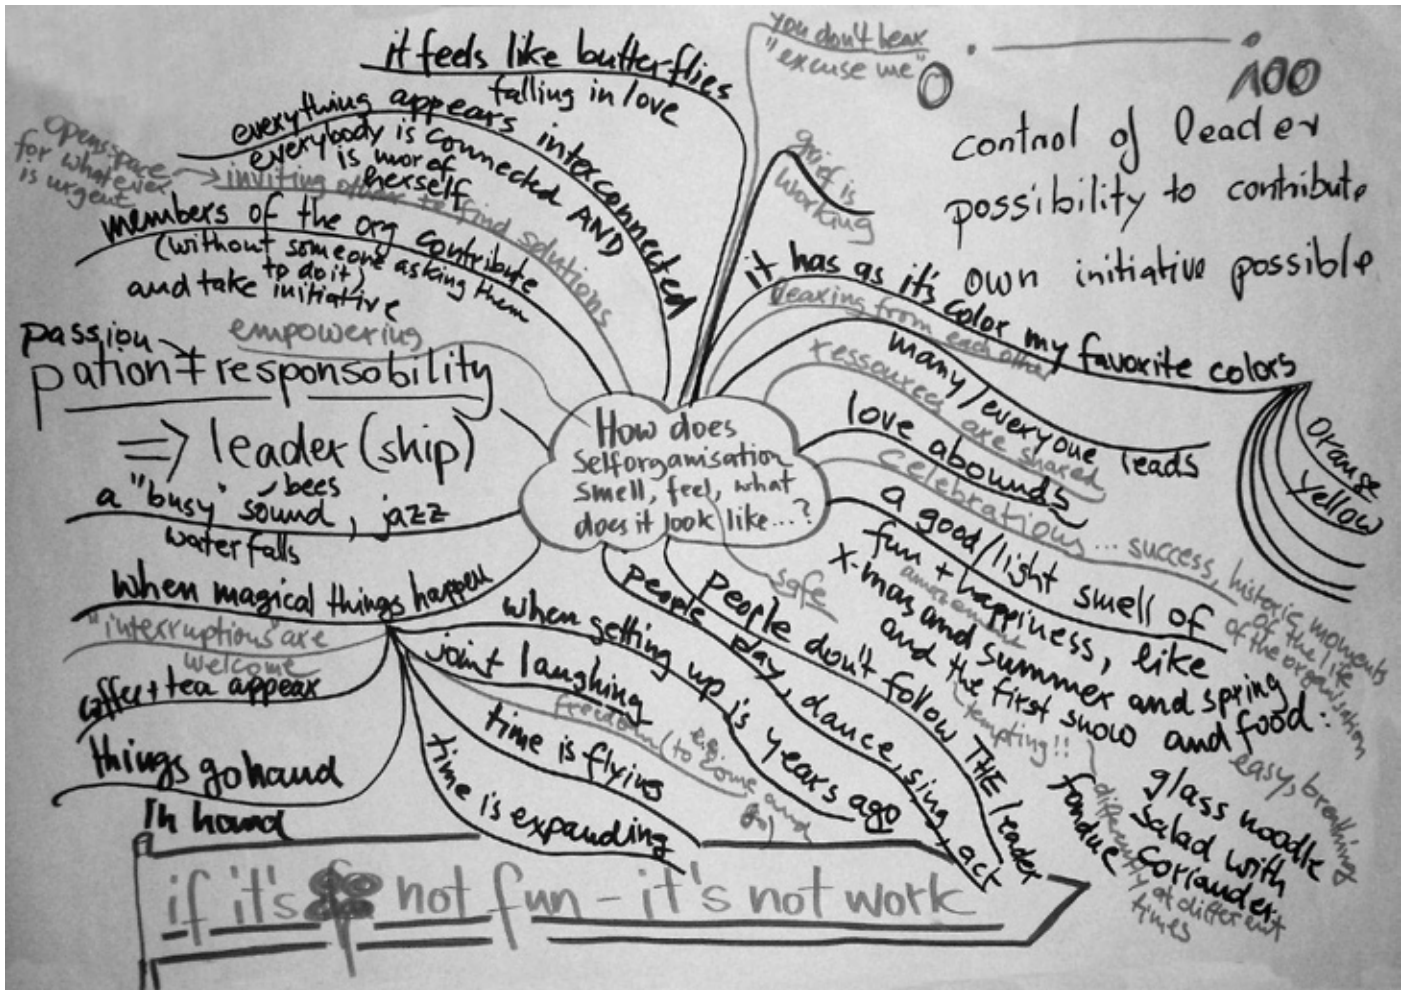 How does
selforganisation
smell, feel, what
does it look like...?
it feels like butterflies
falling in love
everything appears interconnected
everybody is connected AND
is more of
herself
open space
for whatever
is urgent
inviting others to find solutions
members of the org contribute
(without someone asking them
to do it)
and take initiative
empowering
passion
pation + responsobility
=> leader (ship)
a "busy" sound, jazz
bees
waterfalls
when magical things happen
"interruptions" are
welcome
coffee + tea appear
things go hand
in hand
when getting up is years ago
joint laughing
freedom (to come and
go)
time is flying
time is expanding
people play, dance, sing, act
people don't follow THE leader
safe
you don't hear
"excuse me"
grief is
working
0
100
control of leader
possibility to contribute
own initiative possible
it has as it's color my favorite colors
orange
yellow
learing from each other
many/everyone leads
ressources are shared
love abounds
celebrations... success, historic moments
of the life
of the organisation
a good/light smell of
fun + happiness, like
amazement
x-mas and summer and spring
and the first snow and food:
tempting!!
easy, breathing
differently at different
times
glass noodle
salad with
coriander
fondue
if it's not fun - it's not work